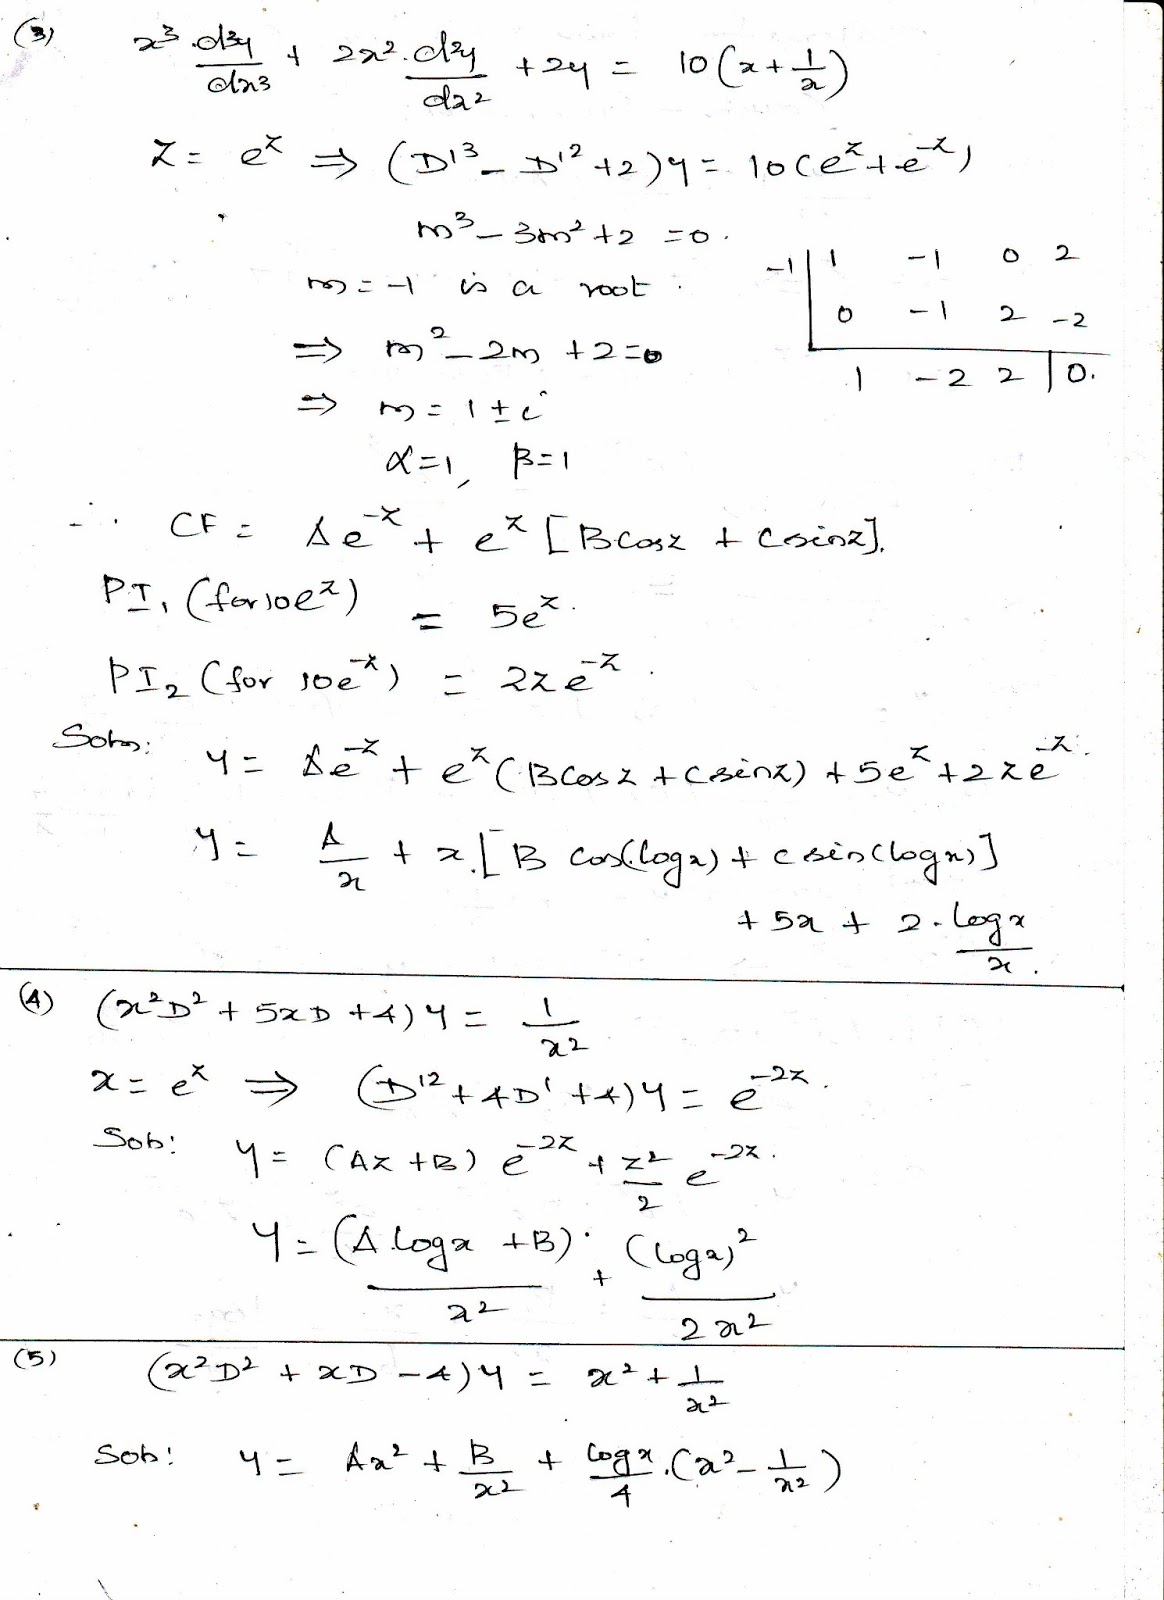 (3) x³·d³y/dx³ + 2x²·d²y/dx² + 2y = 10(x + 1/x)
Z = e^z ⇒ (D'³ - D'² + 2)y = 10(e^z + e^-z)
m³ - 3m² + 2 = 0.
m = -1 is a root.
-1 | 1 -1 0 2
0 -1 2 -2
1 -2 2 | 0.
⇒ m² - 2m + 2 = 0
⇒ m = 1 ± i
α = 1, β = 1
∴ CF = Ae^-z + e^z [B cos z + C sin z].
PI₁ (for 10e^z) = 5e^z.
PI₂ (for 10e^-z) = 2ze^-z.
Soln: y = Ae^-z + e^z (B cos z + C sin z) + 5e^z + 2ze^-z.
y = A/x + x.[B cos(log x) + C sin(log x)]
+ 5x + 2·log x/x.
(4) (x²D² + 5xD + 4)y = 1/x²
x = e^z ⇒ (D'² + 4D' + 4)y = e^-2z.
Sol: y = (Az + B) e^-2z + z²/2 e^-2z.
y = (A log x + B)/x² + (log x)²/2x²
(5) (x²D² + xD - 4)y = x² + 1/x²
Sol: y = Ax² + B/x² + log x/4 .(x² - 1/x²)